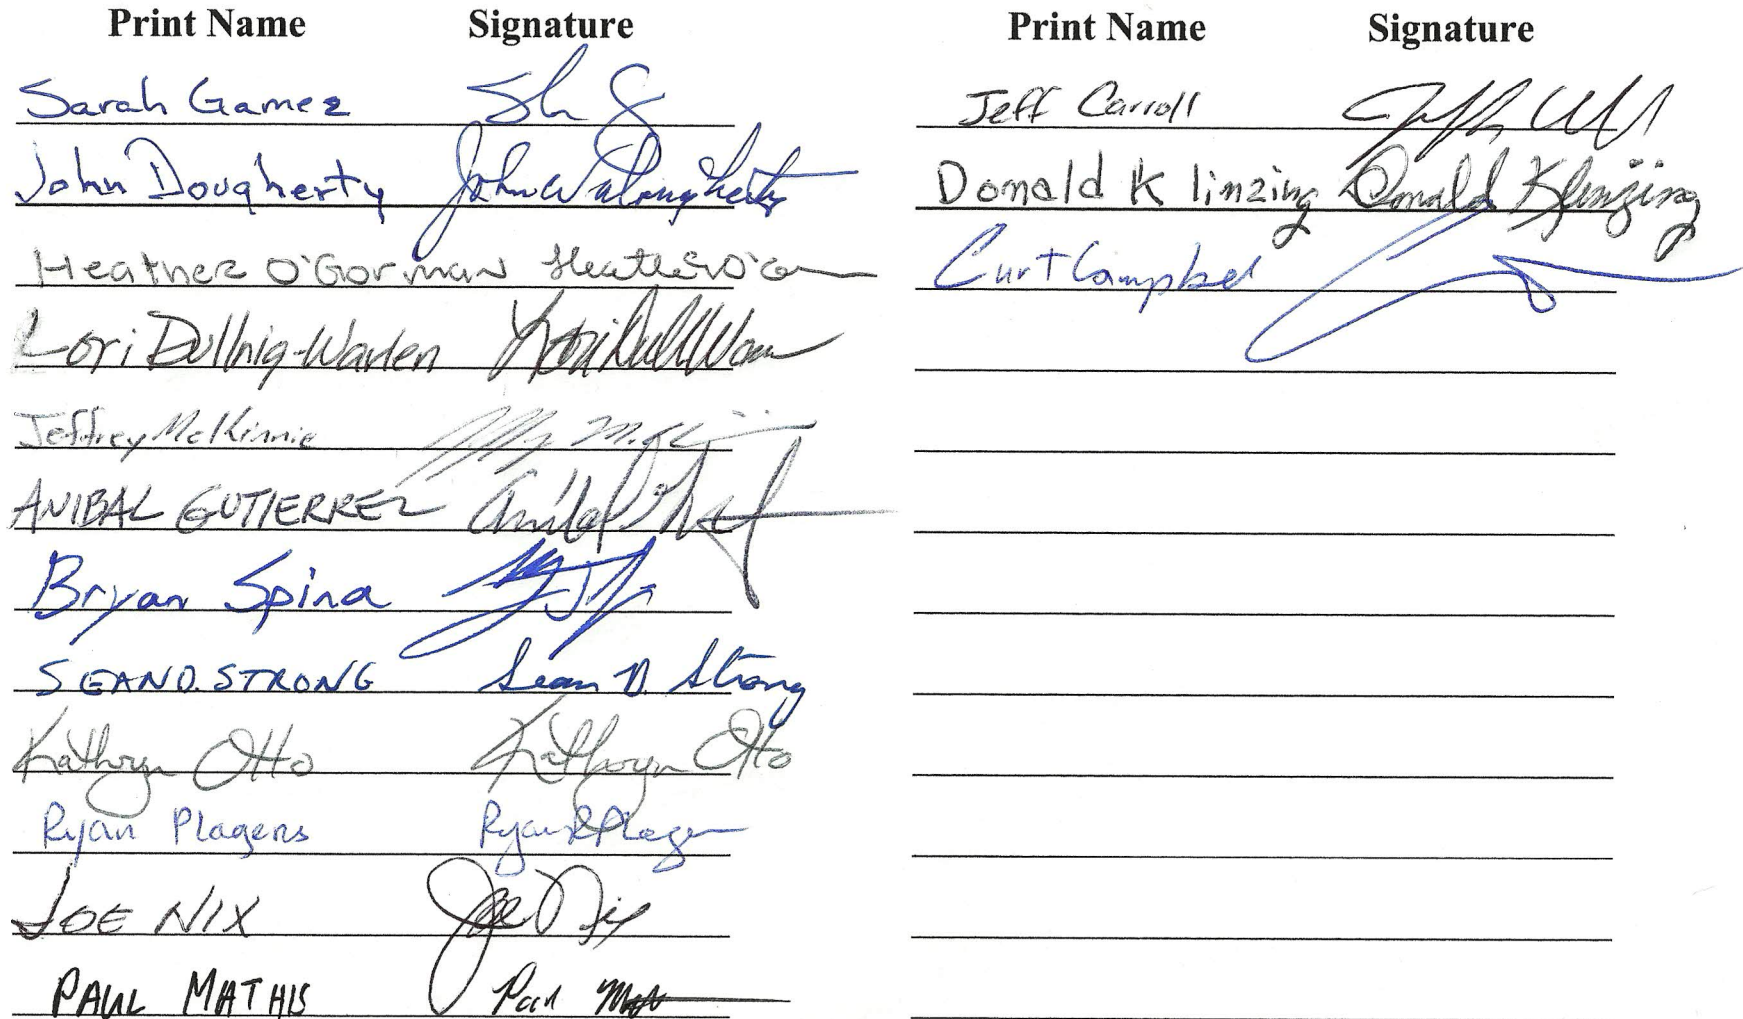 Print Name Signature
Sarah Gamez
John Dougherty John W Dougherty
Heather O'Gorman Heather O'Go
Lori Dullnig-Warden
Jeffrey McKinnie
ANIBAL GUTIERREZ
Bryan Spina
SEAN D. STRONG Sean D Strong
Kathryn Otto Kathryn Otto
Ryan Plagens Ryan Plagen
JOE NIX Joe Nix
PAUL MATHIS Paul
Print Name Signature
Jeff Carroll
Donald Klinzing Donald Klinzing
Curt Campbel